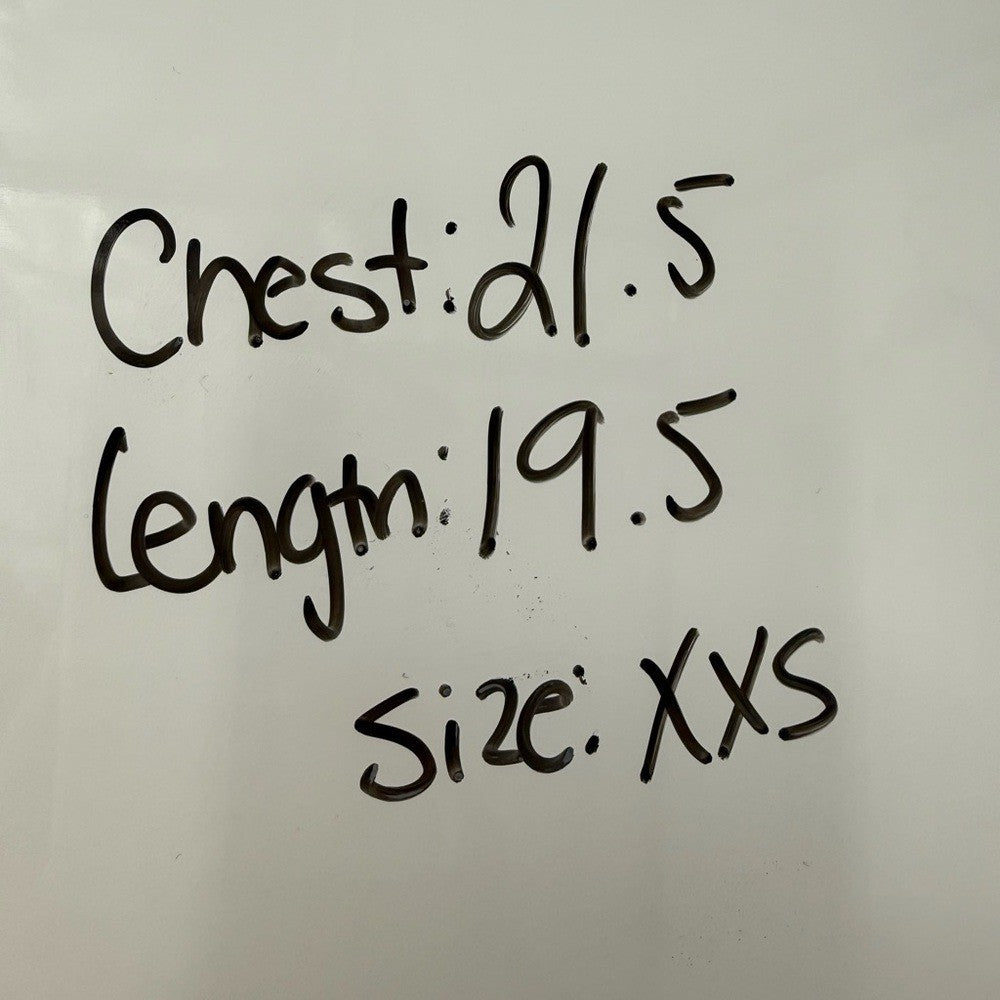 Chest: 21.5
Length: 19.5
Size: XXS